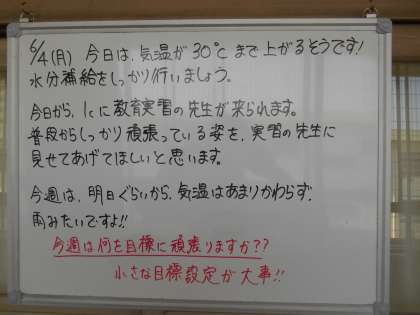 6/4(月) 今日は、気温が30℃まで上がるそうです!
水分補給をしっかり行いましょう。
今日から、1Cに教育実習の先生が来られます。
普段からしっかり頑張っている姿を、実習の先生に
見せてあげてほしいと思います。
今週は、明日ぐらいから、気温はあまりかわらず、
雨みたいですよ!!
今週は何を目標に頑張りますか??
小さな目標設定が大事!!